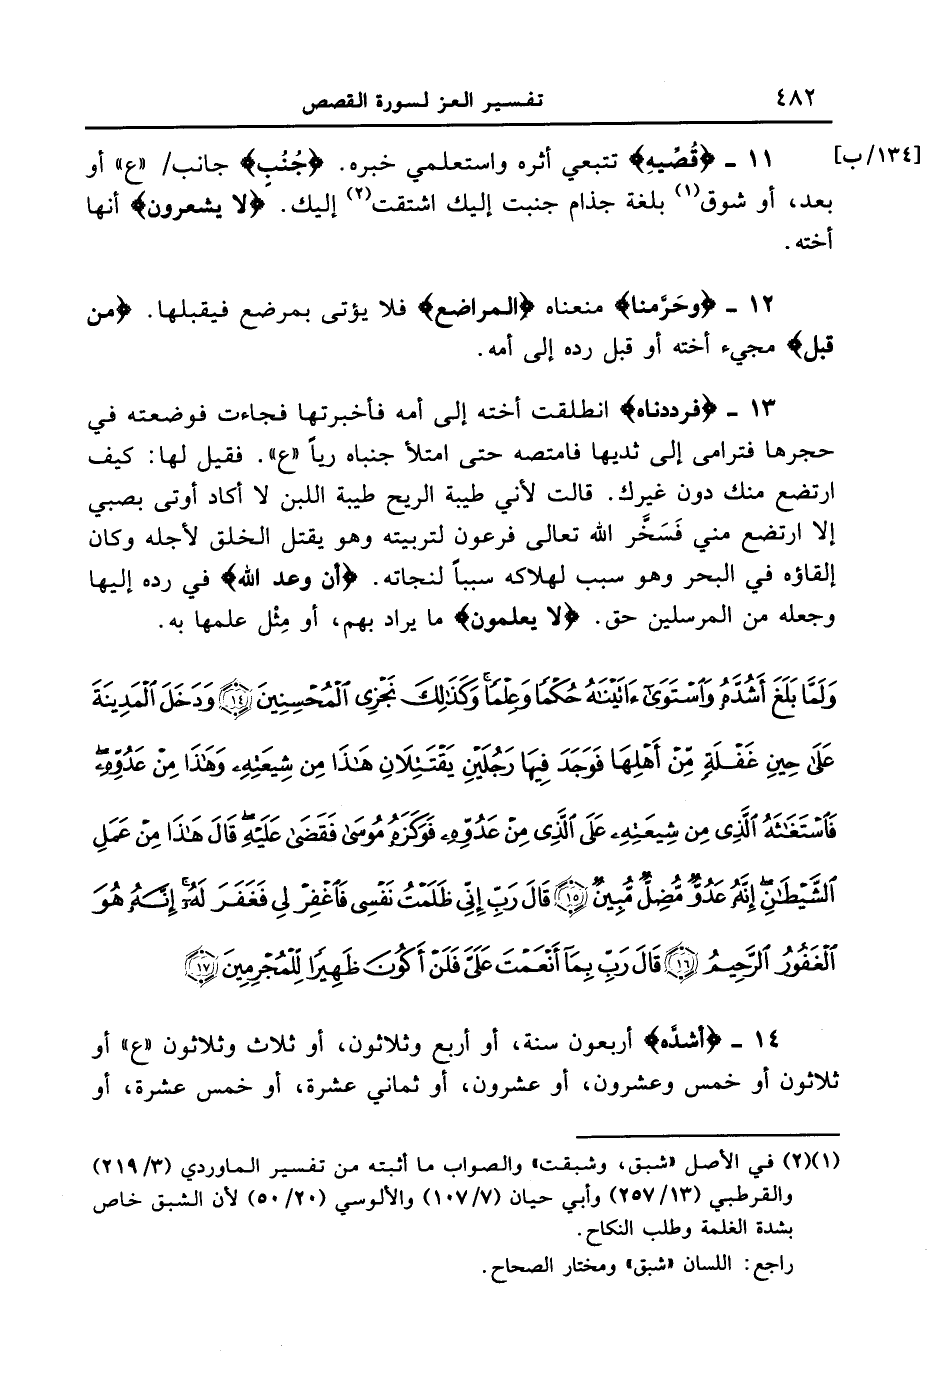 ٤٨٢ تفسير العز لسورة القصص
[١٣٤/ب] ١١ ـ ﴿قُصِّيهِ﴾ تتبعي أثره واستعلمي خبره. ﴿جُنُبٍ﴾ جانب/ «ع» أو
بعد، أو شوق(١) بلغة جذام جنبت إليك اشتقت(٢) إليك. ﴿لا يشعرون﴾ أنها
أخته.
١٢ ـ ﴿وحَرَّمنا﴾ منعناه ﴿المراضع﴾ فلا يؤتى بمرضع فيقبلها. ﴿من
قبل﴾ مجيء أخته أو قبل رده إلى أمه.
١٣ ـ ﴿فرددناه﴾ انطلقت أخته إلى أمه فأخبرتها فجاءت فوضعته في
حجرها فترامى إلى ثديها فامتصه حتى امتلأ جنباه رياً «ع». فقيل لها: كيف
ارتضع منك دون غيرك. قالت لأني طيبة الريح طيبة اللبن لا أكاد أوتى بصبي
إلا ارتضع مني فَسَخَّر الله تعالى فرعون لتربيته وهو يقتل الخلق لأجله وكان
إلقاؤه في البحر وهو سبب لهلاكه سبباً لنجاته. ﴿أن وعد الله﴾ في رده إليها
وجعله من المرسلين حق. ﴿لا يعلمون﴾ ما يراد بهم، أو مِثْل علمها به.
وَلَمَّا بَلَغَ أَشُدَّهُۥ وَٱسۡتَوَىٰٓ ءَاتَيۡنَٰهُ حُكۡمٗا وَعِلۡمٗاۚ وَكَذَٰلِكَ نَجۡزِي ٱلۡمُحۡسِنِينَ ١٤ وَدَخَلَ ٱلۡمَدِينَةَ
عَلَىٰ حِينِ غَفۡلَةٖ مِّنۡ أَهۡلِهَا فَوَجَدَ فِيهَا رَجُلَيۡنِ يَقۡتَتِلَانِ هَٰذَا مِن شِيعَتِهِۦ وَهَٰذَا مِنۡ عَدُوِّهِۦۖ
فَٱسۡتَغَٰثَهُ ٱلَّذِي مِن شِيعَتِهِۦ عَلَى ٱلَّذِي مِنۡ عَدُوِّهِۦ فَوَكَزَهُۥ مُوسَىٰ فَقَضَىٰ عَلَيۡهِۖ قَالَ هَٰذَا مِنۡ عَمَلِ
ٱلشَّيۡطَٰنِۖ إِنَّهُۥ عَدُوّٞ مُّضِلّٞ مُّبِينٞ ١٥ قَالَ رَبِّ إِنِّي ظَلَمۡتُ نَفۡسِي فَٱغۡفِرۡ لِي فَغَفَرَ لَهُۥٓۚ إِنَّهُۥ هُوَ
ٱلۡغَفُورُ ٱلرَّحِيمُ ١٦ قَالَ رَبِّ بِمَآ أَنۡعَمۡتَ عَلَيَّ فَلَنۡ أَكُونَ ظَهِيرٗا لِّلۡمُجۡرِمِينَ ١٧
١٤ ـ ﴿أشدَّه﴾ أربعون سنة، أو أربع وثلاثون، أو ثلاث وثلاثون «ع» أو
ثلاثون أو خمس وعشرون، أو عشرون، أو ثماني عشرة، أو خمس عشرة، أو
(١)(٢) في الأصل «شبق، وشبقت» والصواب ما أثبته من تفسير الماوردي (٢١٩/٣)
والقرطبي (٢٥٧/١٣) وأبي حيان (١٠٧/٧) والألوسي (٥٠/٢٠) لأن الشبق خاص
بشدة الغلمة وطلب النكاح.
راجع: اللسان «شبق» ومختار الصحاح.